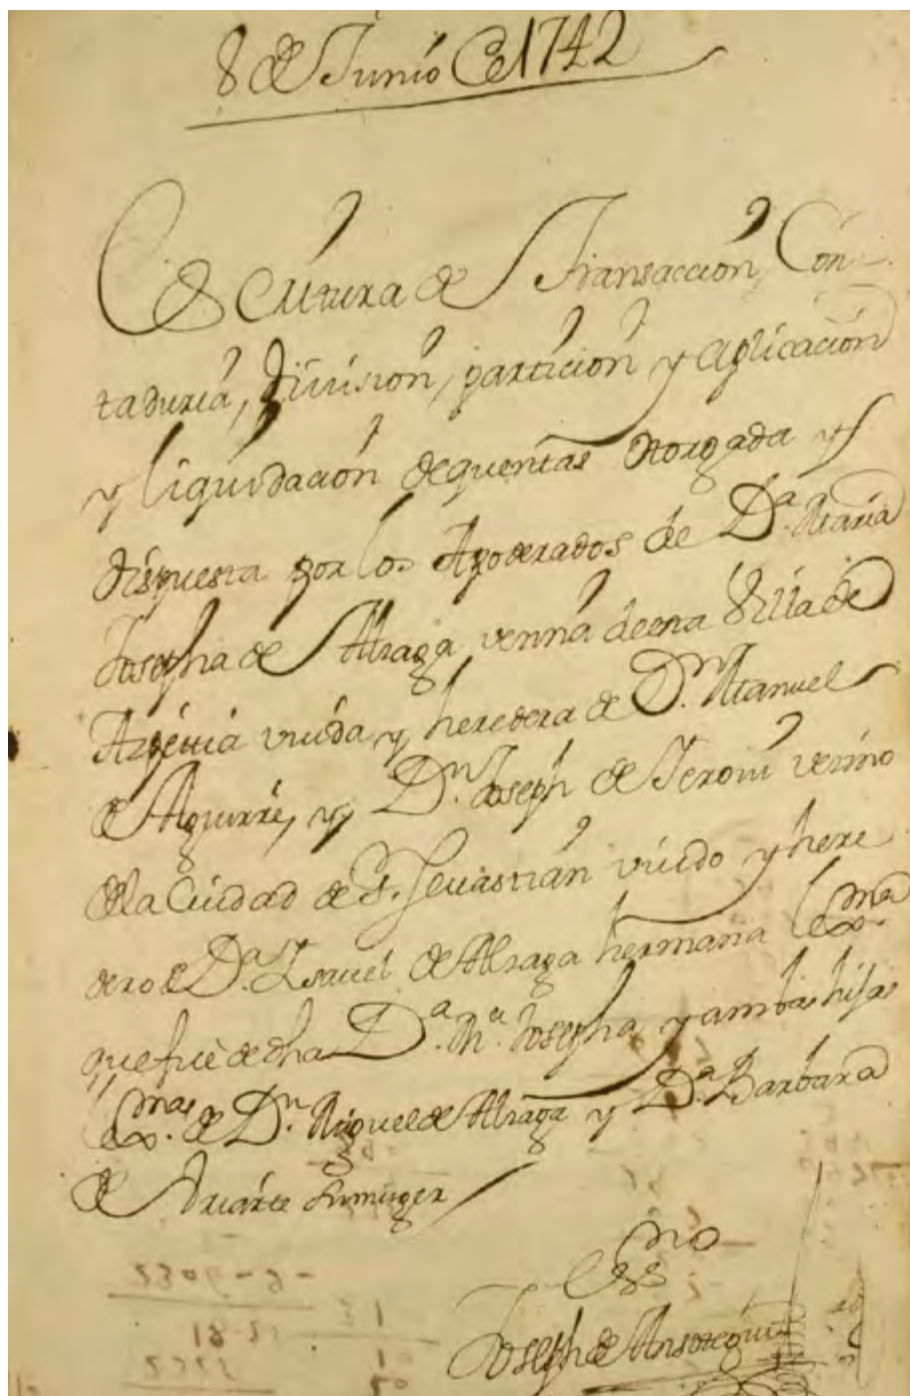 8 de Junio de 1742
Escritura de Transaccion, Con-
taduria, Division, particion y aplicacion
y liquidacion de quentas otorgada y
dispuesta por los Apoderados de D.ª Maria
Josepha de Alzaga vezina de esta Villa de
Azpeitia viuda y heredera de D.n Manuel
de Aguirre, y D.n Joseph de Jeroni vezino
de la Ciudad de S. Sevastian viudo y here
dero de D.ª Isavel de Alzaga hermana lex.ma
que fue de dha D.ª M.ª Josepha, y ambas hijas
lex.mas de D.n Miguel de Alzaga y D.ª Barbara
de Uriarte su muger
Ess.no
Joseph de Ansoregui